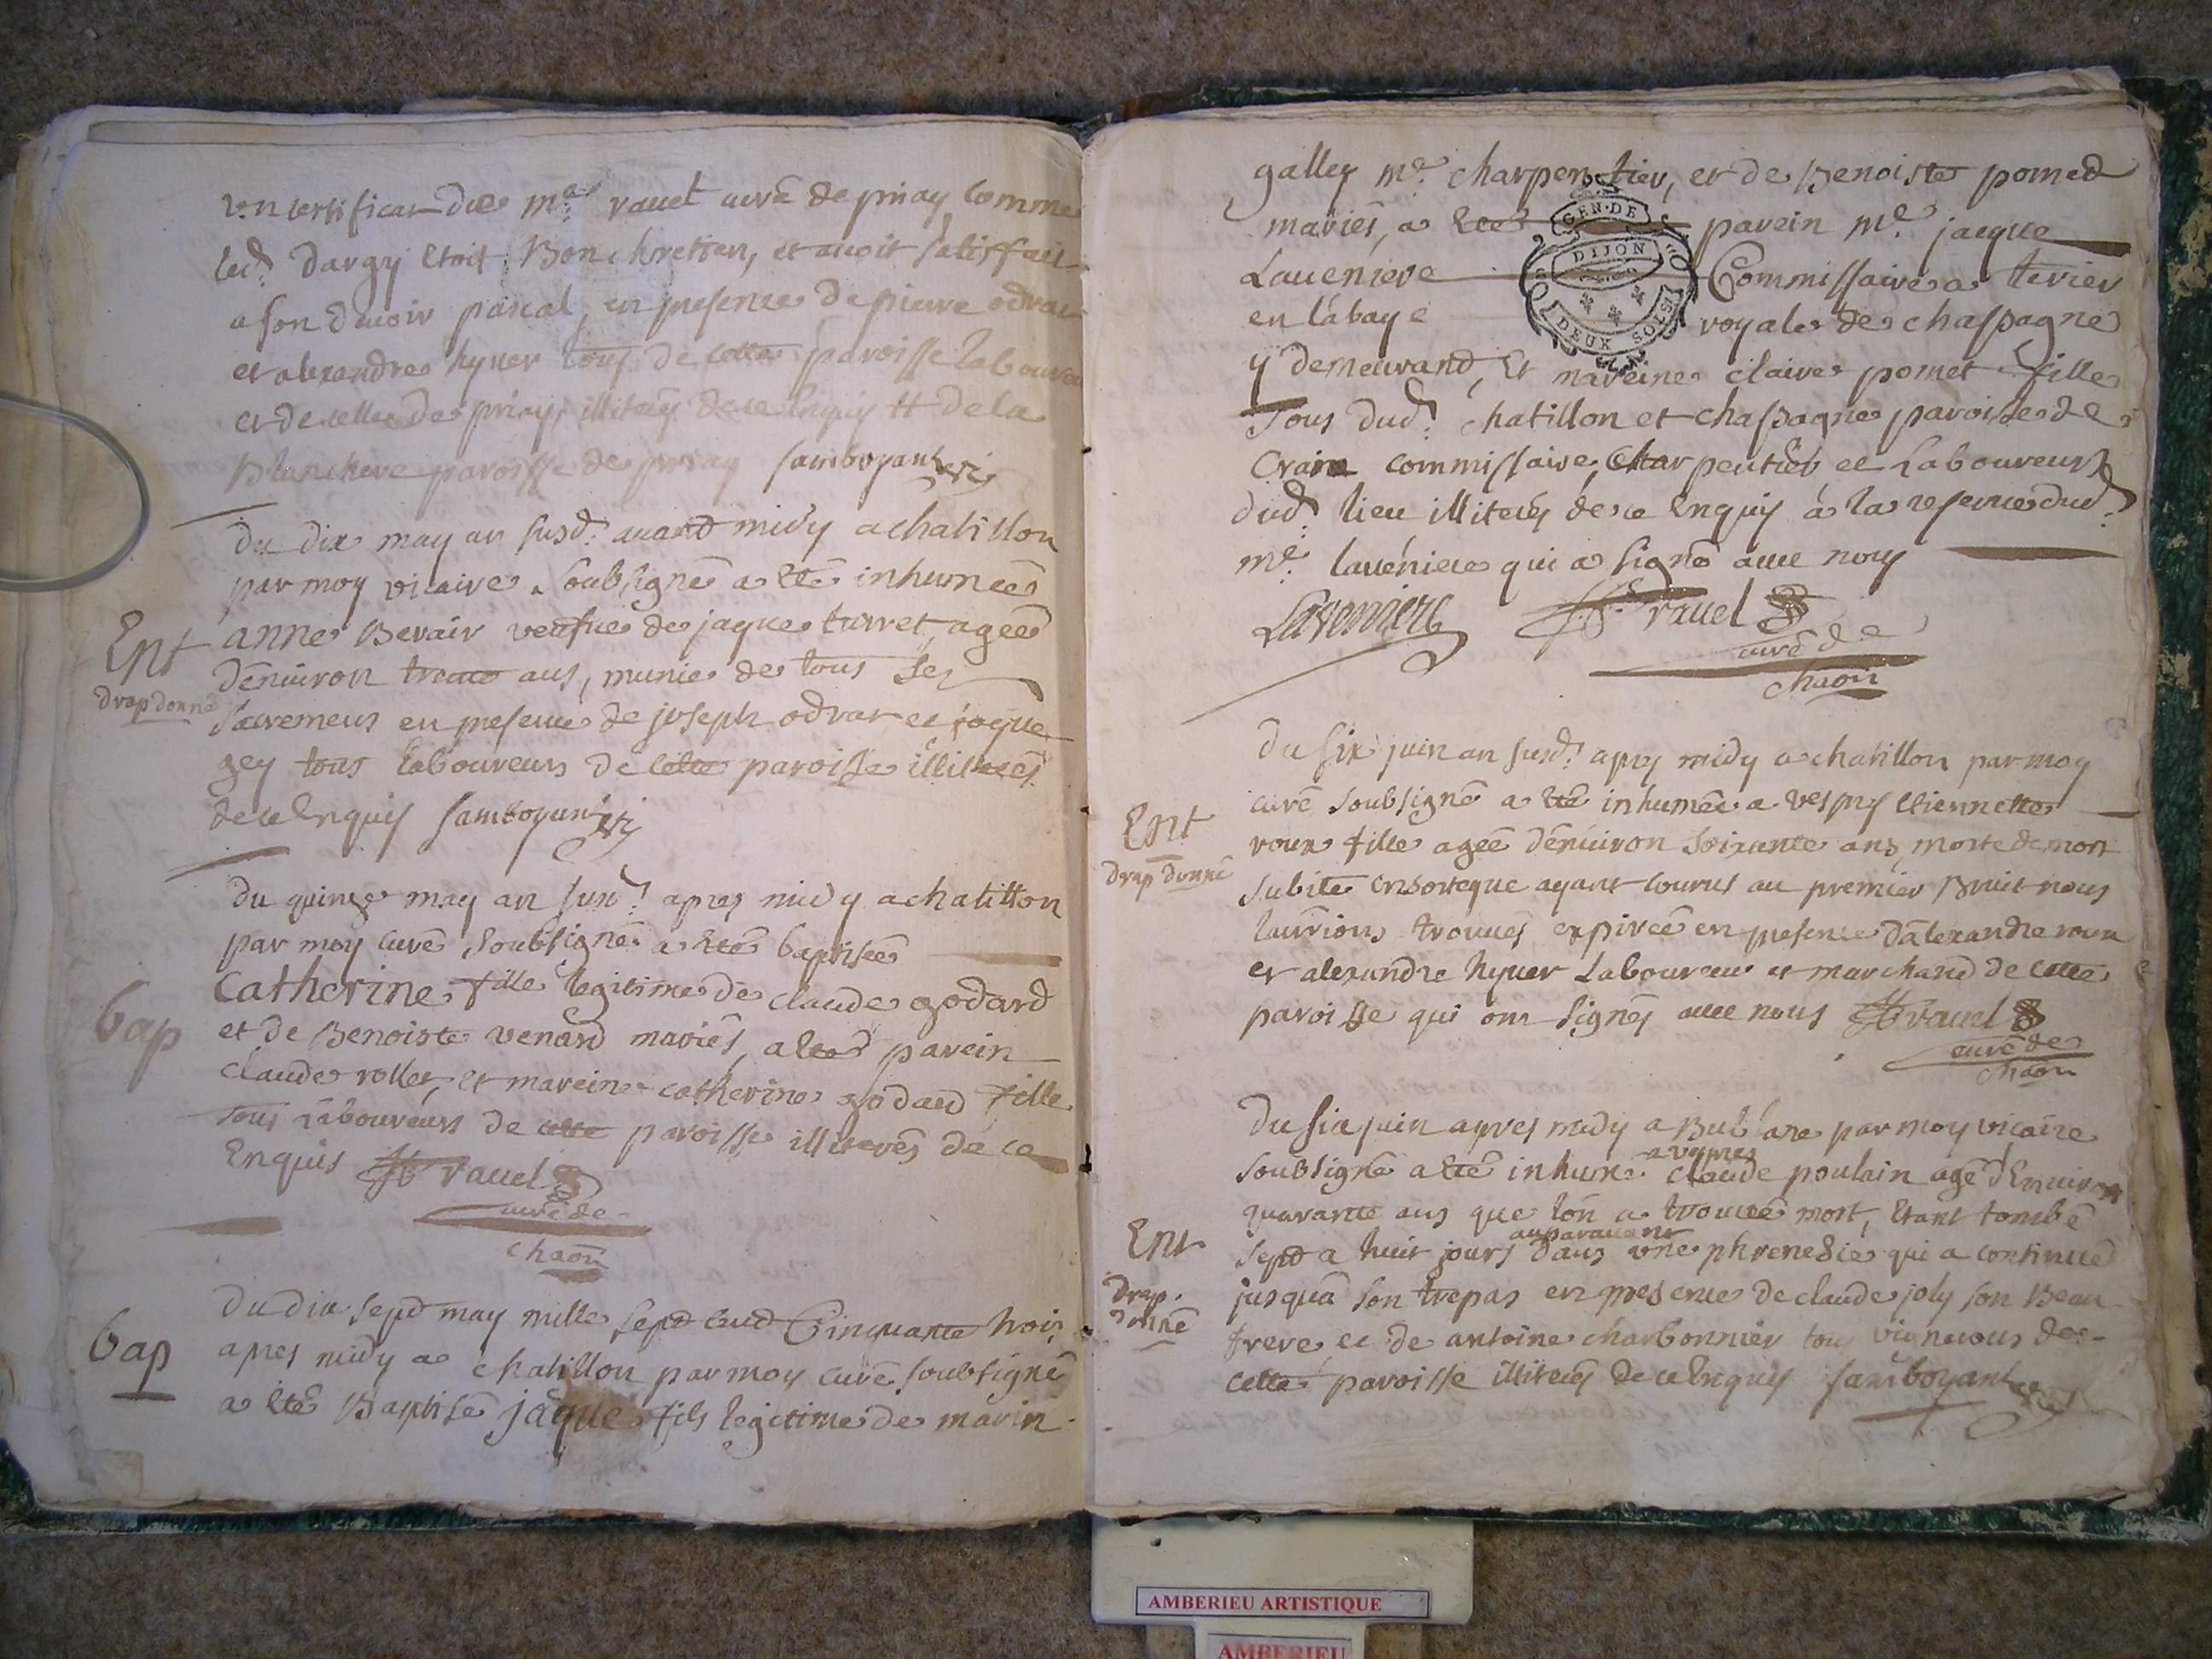 un certificat du Me ravet curé de priay comme
led. dargy etoit Bon chretien, et avoit satisffait
a son devoir pascal, en presence de pierre odrat
et alexandre hyver tous de cette paroisse laboureurs
et de celle de priay, illiterés de ce Enquis de la
Blanchere paroisse de priay
du dix may an susd. avand midy a chatillon
par moy vicaire soubsigné a eté inhumeé
Ent
anne Berair veufve de jaque turret, ageé
d'énviron trente ans, munie de tous ses
drap donné
sacremens en presence de joseph odrat et jaque
gey tous laboureurs de cette paroisse illiterés
de ce Enquis
du quinze may an susd. apres midy a chatillon
par moy curé soubsigné a eté baptiseé
bap
Catherine fille legitime de claude godard
et de Benoiste venard mariés, a eté parein
claude rollet, et mareine catherine godard fille
tous laboureurs de cette paroisse illiterés de ce
Enquis ravel
curé de
chaon
bap
du dix sept may mille sept cent Cinquante trois
apres midy a chatillon par moy curé soubsigné
a eté Baptisé jaque fils legitime de marin
galley Me. charpentier, et de Benoiste pomed
mariés, a eté parein Me. jacque
Laveniere Commissaire a terier
GEN·DE
DIJON
DEUX SOLS
en l'abaye royale de chassagne
y demeurand, Et mareine claire pomet fille
Tous dud. chatillon et chassagne paroisse de
Crans commissaire, charpentier et Laboureurs
dud. lieu illiterés de ce Enquis á la reserve dud.
Me. laveniere qui a signé avec nous
Laveniere ravel
curé de
chaon
du six juin an susd. apres midy a chatillon par moy
curé soubsigné a eté inhumeé a vespres Etiennette
Ent
roux fille ageé d'énviron soixante ans, morte de mort
drap donné
subite ensorteque ayant courus au premier Bruit nous
l'aurions trouveé expireé en presence d'alexandre roux
et alexandre hyver Laboureur et marchand de cette
paroisse qui ont signés avec nous ravel
curé de
chaon
du six juin apres midy a Bublane par moy vicaire
soubsigné a eté inhumé a vepres claude poulain agé d'Environ
quarante ans que lón a trouvé mort, etant tombé
Ent
sept a huit jours auparavant dans une phrenesie qui a continué
drap
donné
jusqu'á son trepas en presence de claude joly son Beau
frere, et de antoine charbonnier tous vignerons de
cette paroisse illiterés de ce Enquis
AMBERIEU ARTISTIQUE
AMBERIEU